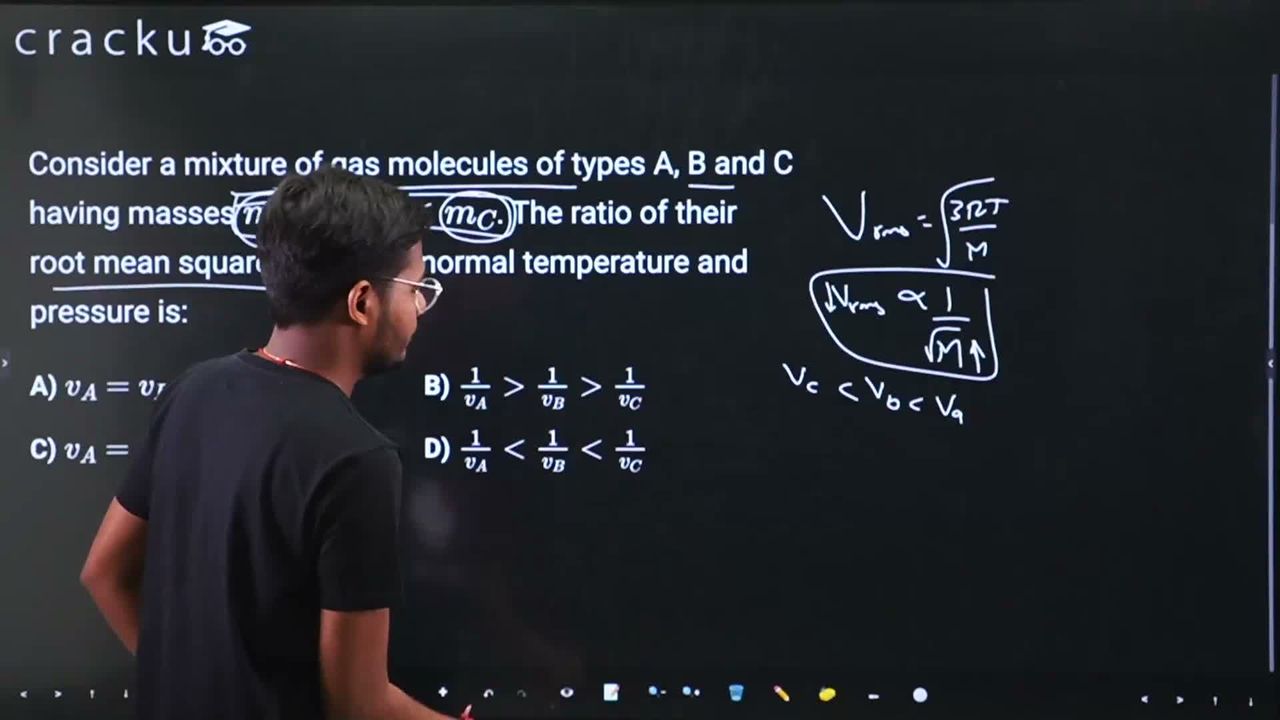 cracku
Consider a mixture of gas molecules of types A, B and C
having masses m_C. The ratio of their
root mean normal temperature and
pressure is:
A) v_A =
B) 1/v_A > 1/v_B > 1/v_C
C) v_A =
D) 1/v_A < 1/v_B < 1/v_C
V_rms = √(3RT/M)
↓V_rms ∝ 1/√M ↑
V_c < V_b < V_a